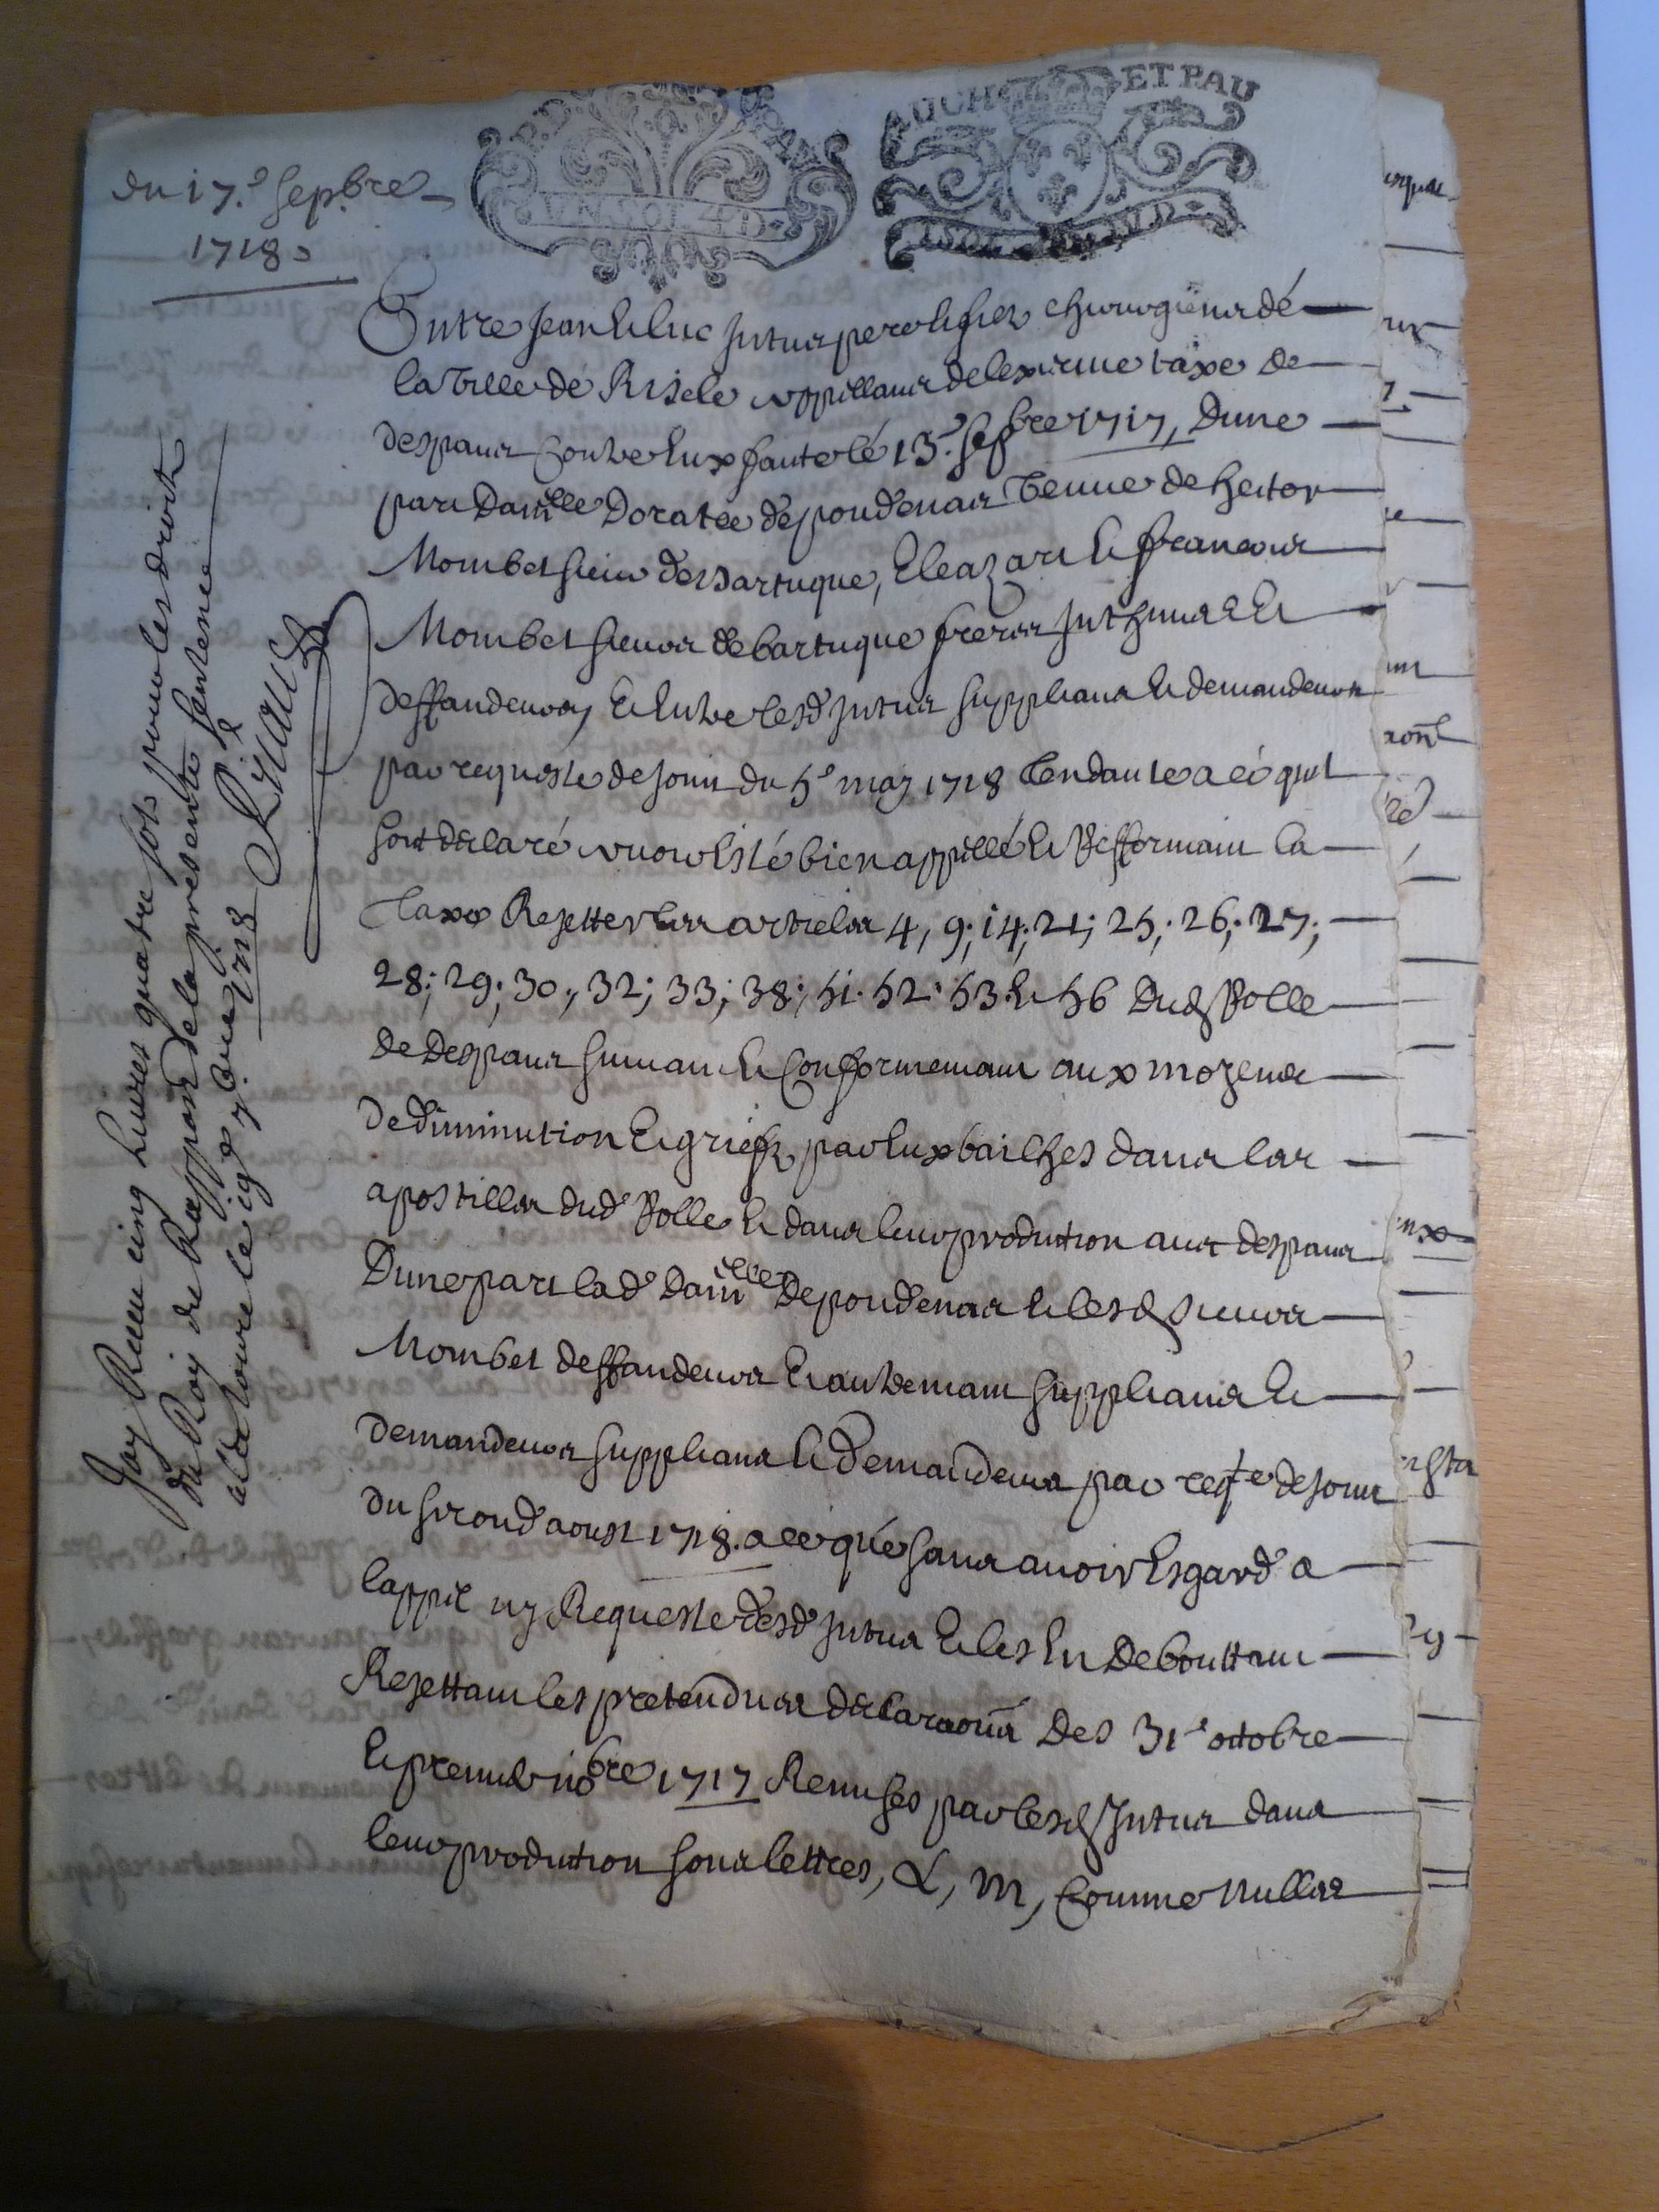 AUCH ET PAU
UN SOL 4 D
du 17.e sepbre
1718
Entre Jean et Luc Intus pere et fils chirurgiens dé
la Ville dé Riscle appellans de lexecutte taxe de
despans contre eux faite lé 13.e sepbre 1717, Dune
part Damlle Doratee de poudenas Veuve de hector
Mombet sieur de sartuque, Eleazar et francois
Mombet sieurs de bartuque freres Inthimes Et
deffandeurs, et Entre lesd Intus supplians et demandeurs
par requeste de Joint du 5e may 1718 tendante a cé quil
soit declaré avoir esté bien appellé et Refformant la
Taxe Rejetter les articles 4, 9; 14; 21; 25; 26; 27;
28; 29; 30; 32; 33; 38; 51. 52. 53. et 56 Dud Rolle
de Despans suivant et Conformemant aux moyens
de diminution et griefs par eux bailhes dans les
apostilles dud Rolle et dans leur prodution aus despans
Dune part lad Damlle De poudenas et lesd sieurs
Mombet deffandeurs Et autremant supplians et
demandeurs supplians et demandeurs par reqte de Joint
du second aoust 1718. a ce qué sans avoir Esgard a
lappel ny Requeste desd Intus Et les En Debouttant
Rejettant les pretendues declaraons Des 31e octobre
Et premier 9bre 1717 Remises par lesd Intus dans
leur prodution sous lettres, L, M, Comme Nulles
Jay Receu cinq Livres quatre sols pour les droits
du Roy du Rapport de la presente sentence
a la tour le 19e 7bre 1718